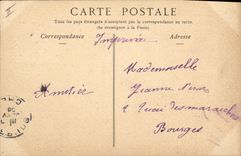 CARTE POSTALE
Tous les pays étrangers n'acceptent pas la correspondance au recto.
(Se renseigner à la Poste).
Correspondance
Adresse
Imprimée
Mademoiselle
Jeanne
Amitiés
2 Quai des
Bourges